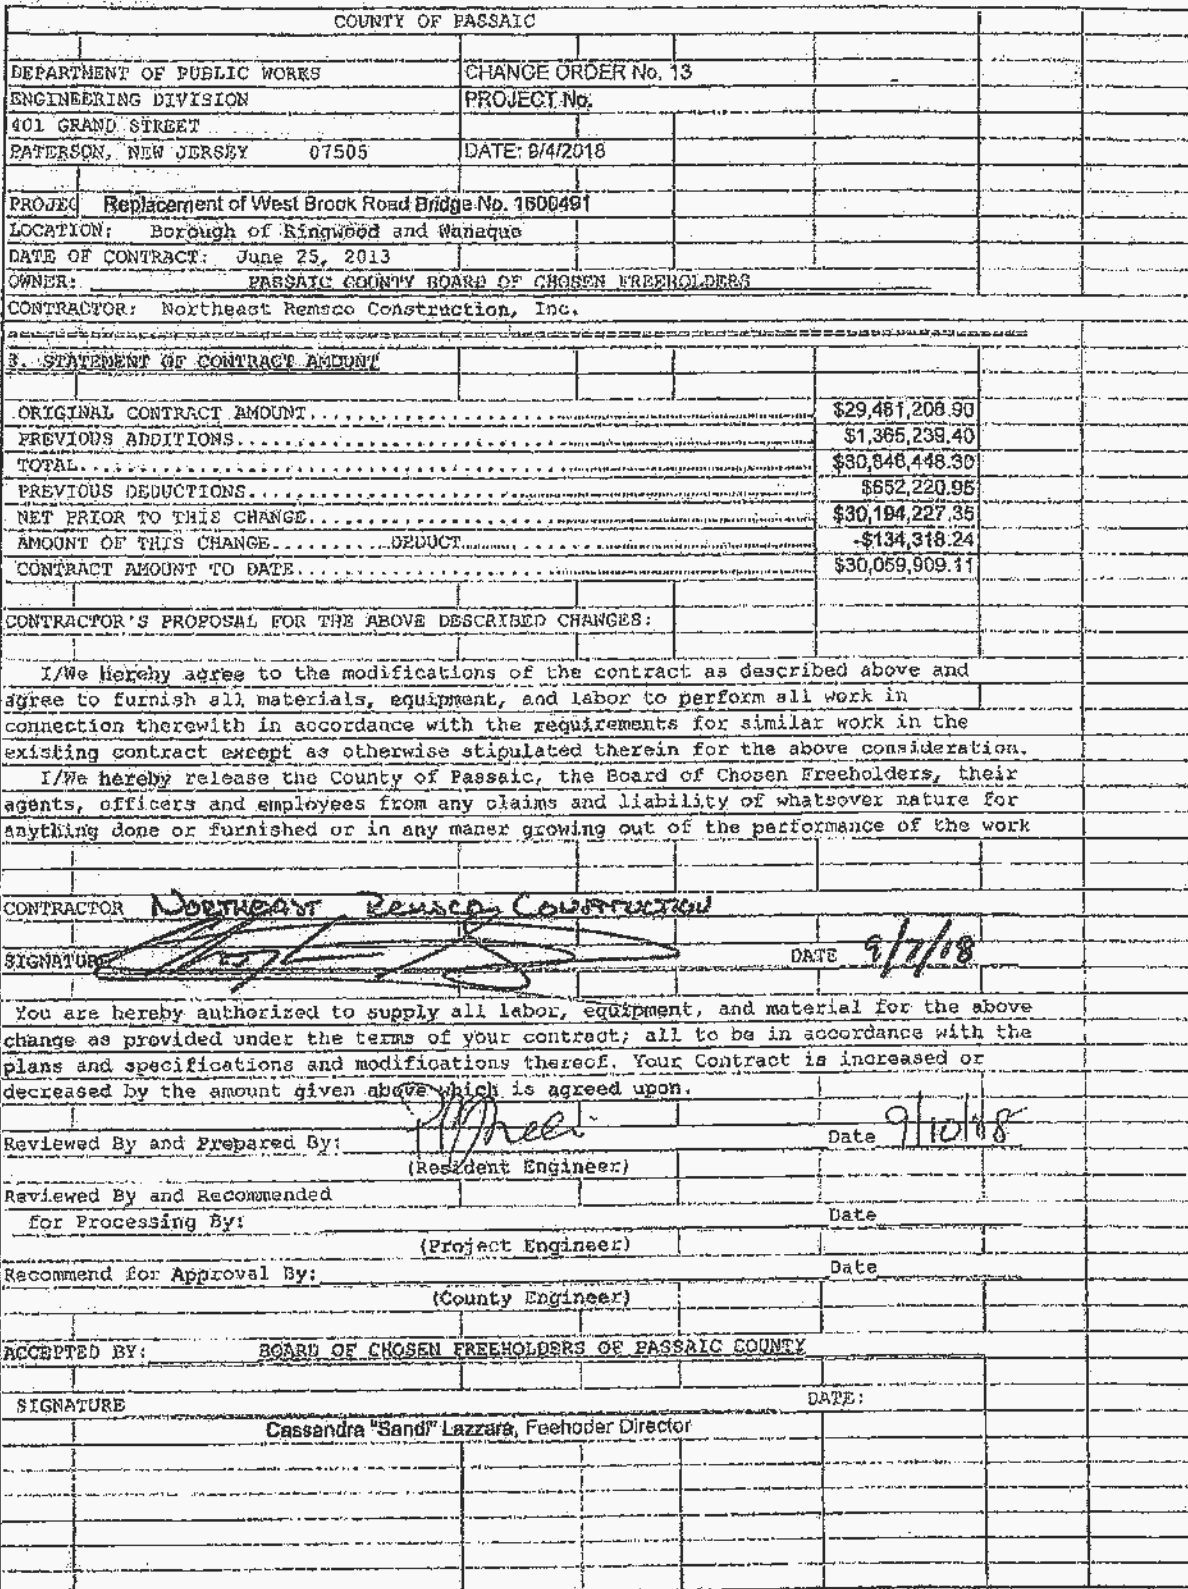 COUNTY OF PASSAIC
DEPARTMENT OF PUBLIC WORKS CHANGE ORDER No. 13
ENGINEERING DIVISION PROJECT No.
401 GRAND STREET
PATERSON, NEW JERSEY 07505 DATE: 9/4/2018
PROJEC Replacement of West Brook Road Bridge No. 1600491
LOCATION: Borough of Ringwood and Wanaque
DATE OF CONTRACT: June 25, 2013
OWNER: PASSAIC COUNTY BOARD OF CHOSEN FREEHOLDERS
CONTRACTOR: Northeast Remsco Construction, Inc.
3. STATEMENT OF CONTRACT AMOUNT
ORIGINAL CONTRACT AMOUNT $29,481,208.90
PREVIOUS ADDITIONS $1,365,239.40
TOTAL $30,846,448.30
PREVIOUS DEDUCTIONS $652,220.95
NET PRIOR TO THIS CHANGE $30,194,227.35
AMOUNT OF THIS CHANGE DEDUCT -$134,318.24
CONTRACT AMOUNT TO DATE $30,059,909.11
CONTRACTOR'S PROPOSAL FOR THE ABOVE DESCRIBED CHANGES:
I/We Hereby agree to the modifications of the contract as described above and
agree to furnish all materials, equipment, and labor to perform all work in
connection therewith in accordance with the requirements for similar work in the
existing contract except as otherwise stipulated therein for the above consideration.
I/We hereby release the County of Passaic, the Board of Chosen Freeholders, their
agents, officers and employees from any claims and liability of whatsover nature for
anything done or furnished or in any maner growing out of the performance of the work
CONTRACTOR NORTHEAST REMSCO CONSTRUCTION
SIGNATURE DATE 9/7/18
You are hereby authorized to supply all labor, equipment, and material for the above
change as provided under the terms of your contract; all to be in accordance with the
plans and specifications and modifications thereof. Your Contract is increased or
decreased by the amount given above which is agreed upon.
Reviewed By and Prepared By: Date 9/10/18
(Resident Engineer)
Reviewed By and Recommended
for Processing By: Date
(Project Engineer)
Recommend for Approval By: Date
(County Engineer)
ACCEPTED BY: BOARD OF CHOSEN FREEHOLDERS OF PASSAIC COUNTY
SIGNATURE DATE:
Cassandra "Sandi" Lazzara, Feehoder Director